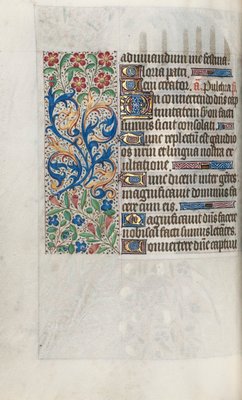 adiuuandum me festina
Gloria patri
Veni creator. a. Pulchra
In conuertendo dñs cap
tiuitatem syon facti
sumus sicut consolati
Tunc repletū est gaudio
os nrm et lingua nostra ex
ultatione
Tunc dicent inter gētes
magnificauit dominus fa
cere cum eis
Magnificauit dñs facere
nobiscū facti sumus letātes
Conuertere dñe captiui